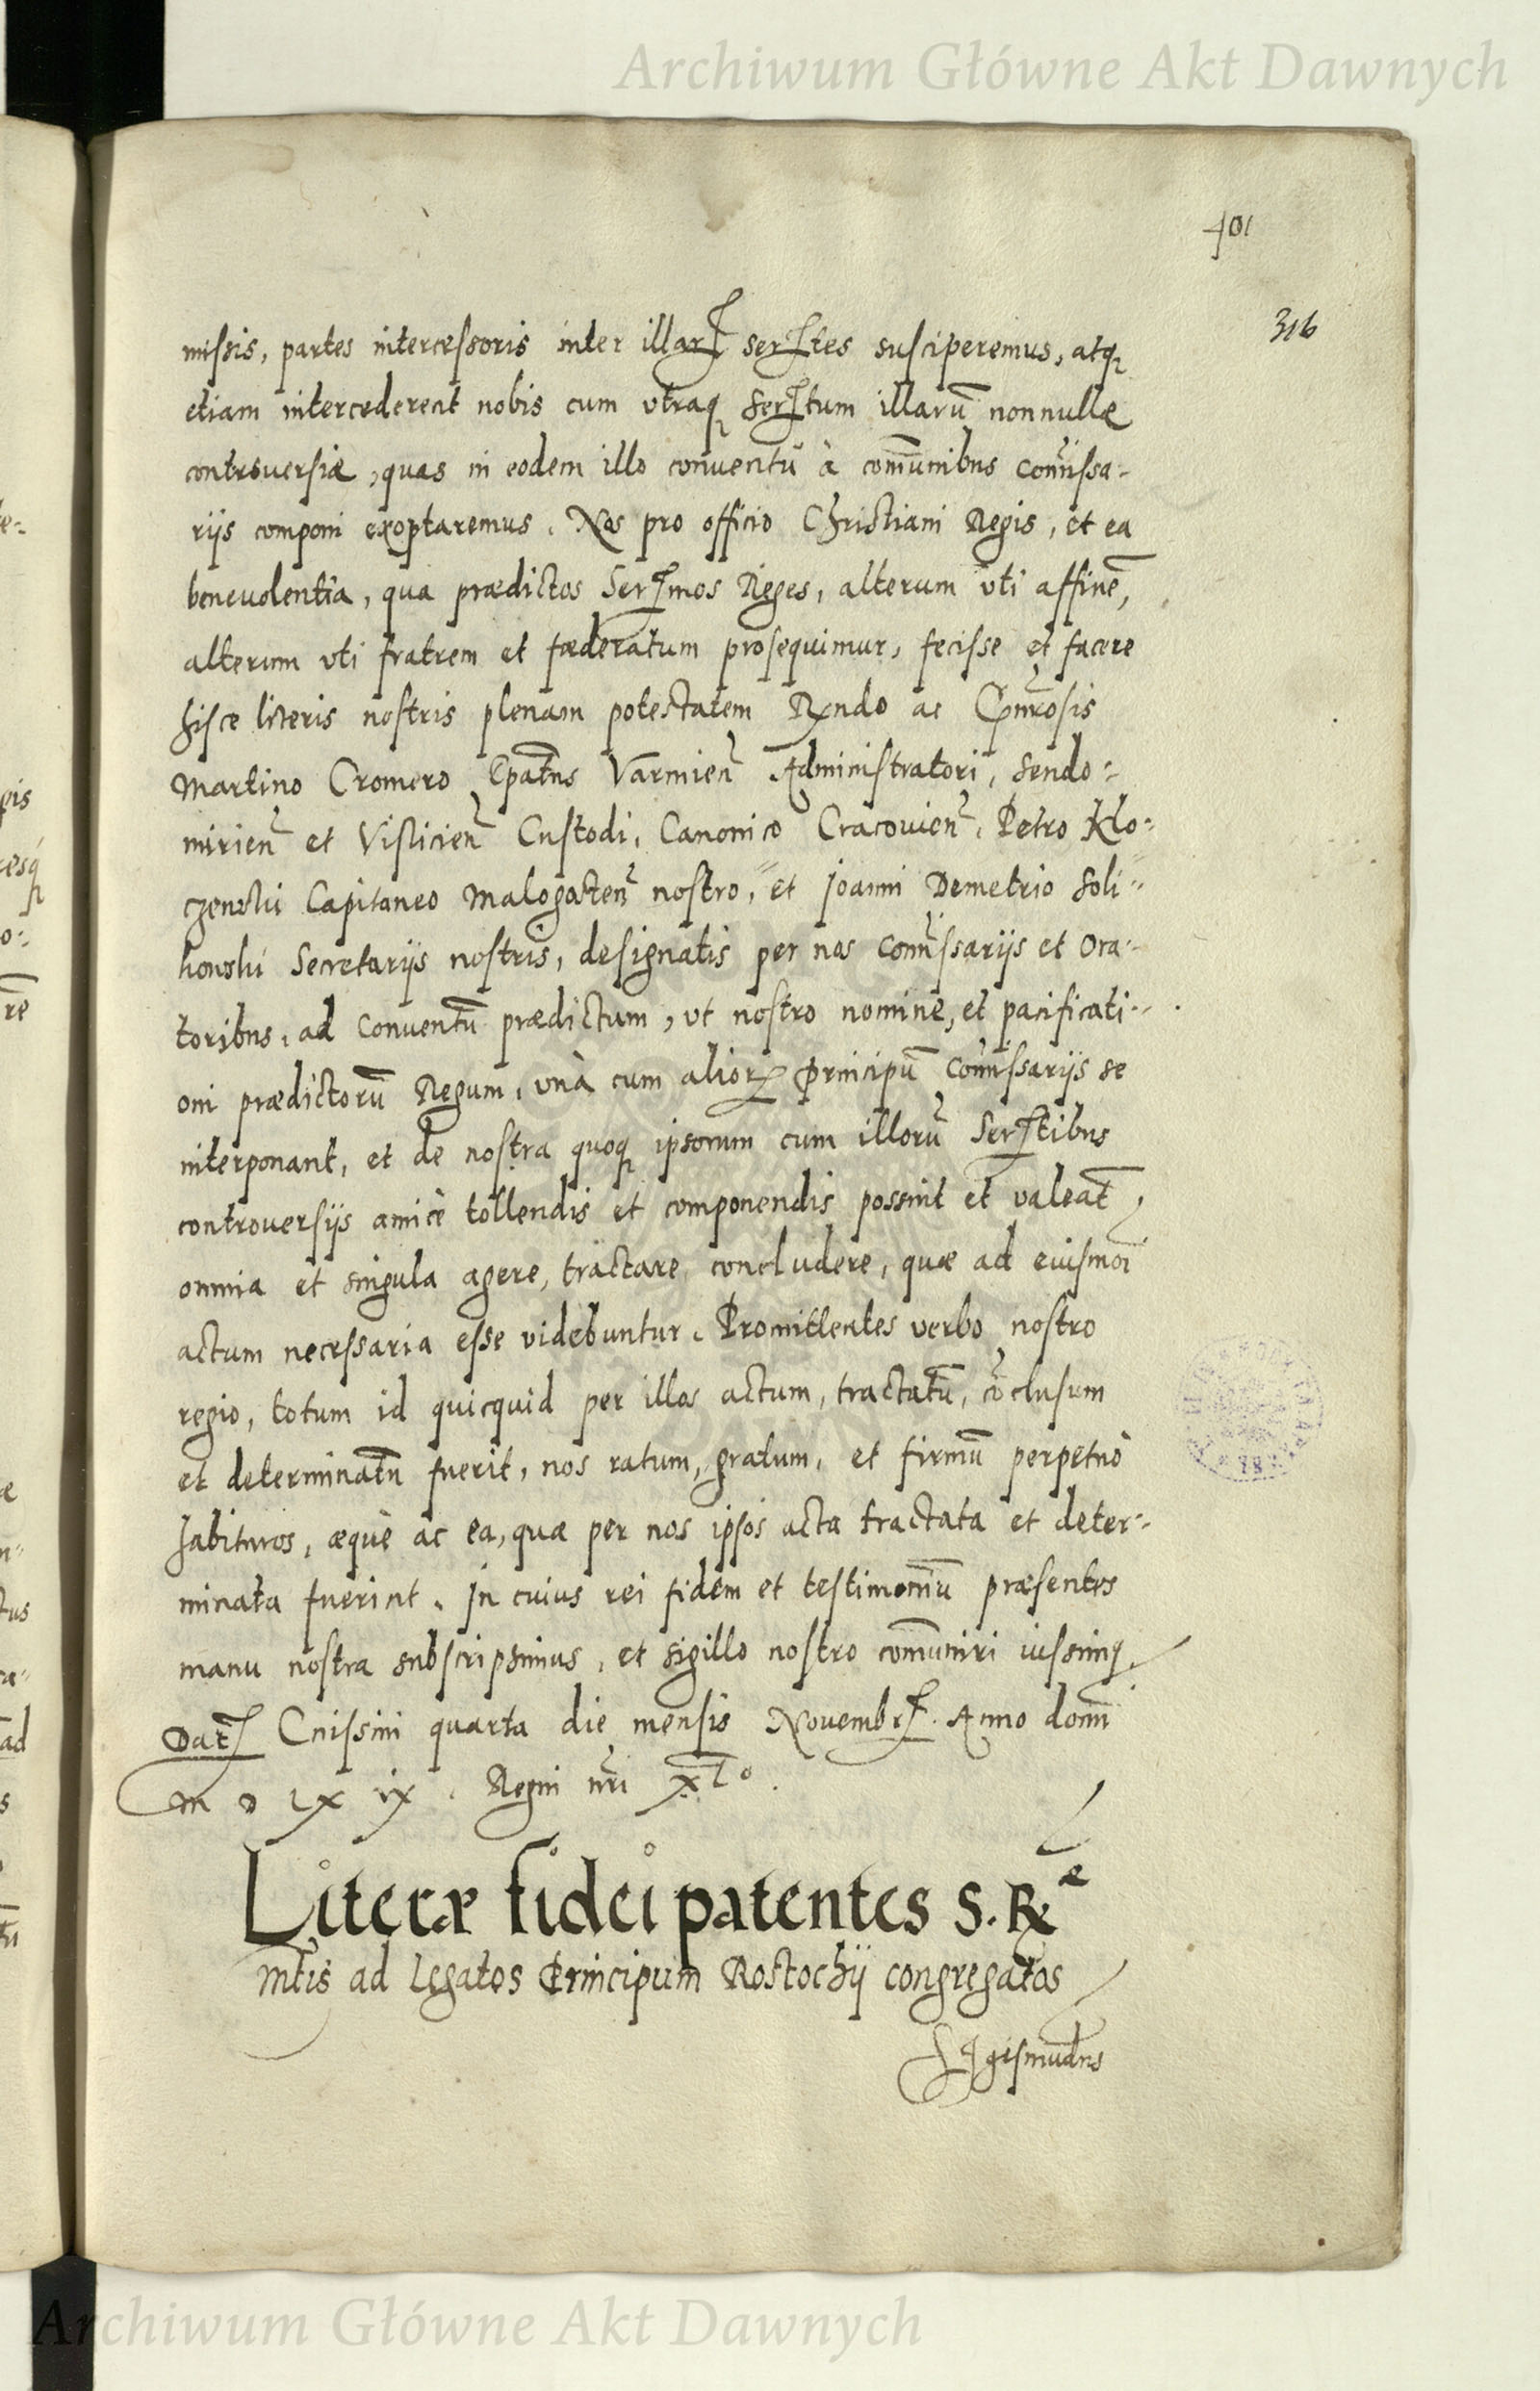 Archiwum Główne Akt Dawnych
401
316
missis, partes intercessoris inter illar serstes susciperemus, atq
etiam intercederent nobis cum vtraq serstum illarū nonnullæ
controversiæ, quas in eodem illo conventu à com̄unibus com̄issa-
rijs componi exoptaremus. Nos pro officio Christiani Regis, et ea
benevolentia, qua prædictos Sermos Reges, alterum vti affinē,
alterum vti fratrem et fœderatum prosequimur, fecisse et facere
hisce literis nostris plenam potestatem Rndo ac Gn̄rosis
Martino Cromero Ep̄atus Varmien̄ Administratori, Sendo-
mirien̄ et Vislicien̄ Custodi, Canonico Cracovien̄, Petro Klo-
czewski Capitaneo Malogosten̄ nostro, et Joanni Demetrio Soli-
kowski Secretarijs nostris, designatis per nos Com̄issarijs et Ora-
toribus, ad Conventū prædictum, vt nostro nomine, et pacificati-
oni prædictorū Regum, vnà cum alior Principū Com̄issarijs se
interponant, et de nostra quoq ipsorum cum illorū Serstibus
controversijs amicè tollendis et componendis possint et valeāt,
omnia et singula agere, tractare, concludere, quæ ad eiusmōi
actum necessaria esse videbuntur. Promittentes verbo nostro
regio, totum id quicquid per illos actum, tractatū, cōclusum
et determinatū fuerit, nos ratum, gratum, et firmū perpetuò
habituros, æquè ac ea, quæ per nos ipsos acta tractata et deter-
minata fuerint. In cuius rei fidem et testimoniū præsentes
manu nostra subscripsimus, et sigillo nostro com̄uniri iussimq.
Dat Cnissini quarta die mensis Novembr. Anno domī
M D LX IX. Regni nr̄i XLo.
Literæ fidei patentes S. R. e
Mt̄is ad Legatos Principum Rostochij congregatos
Sigismūdus
Archiwum Główne Akt Dawnych